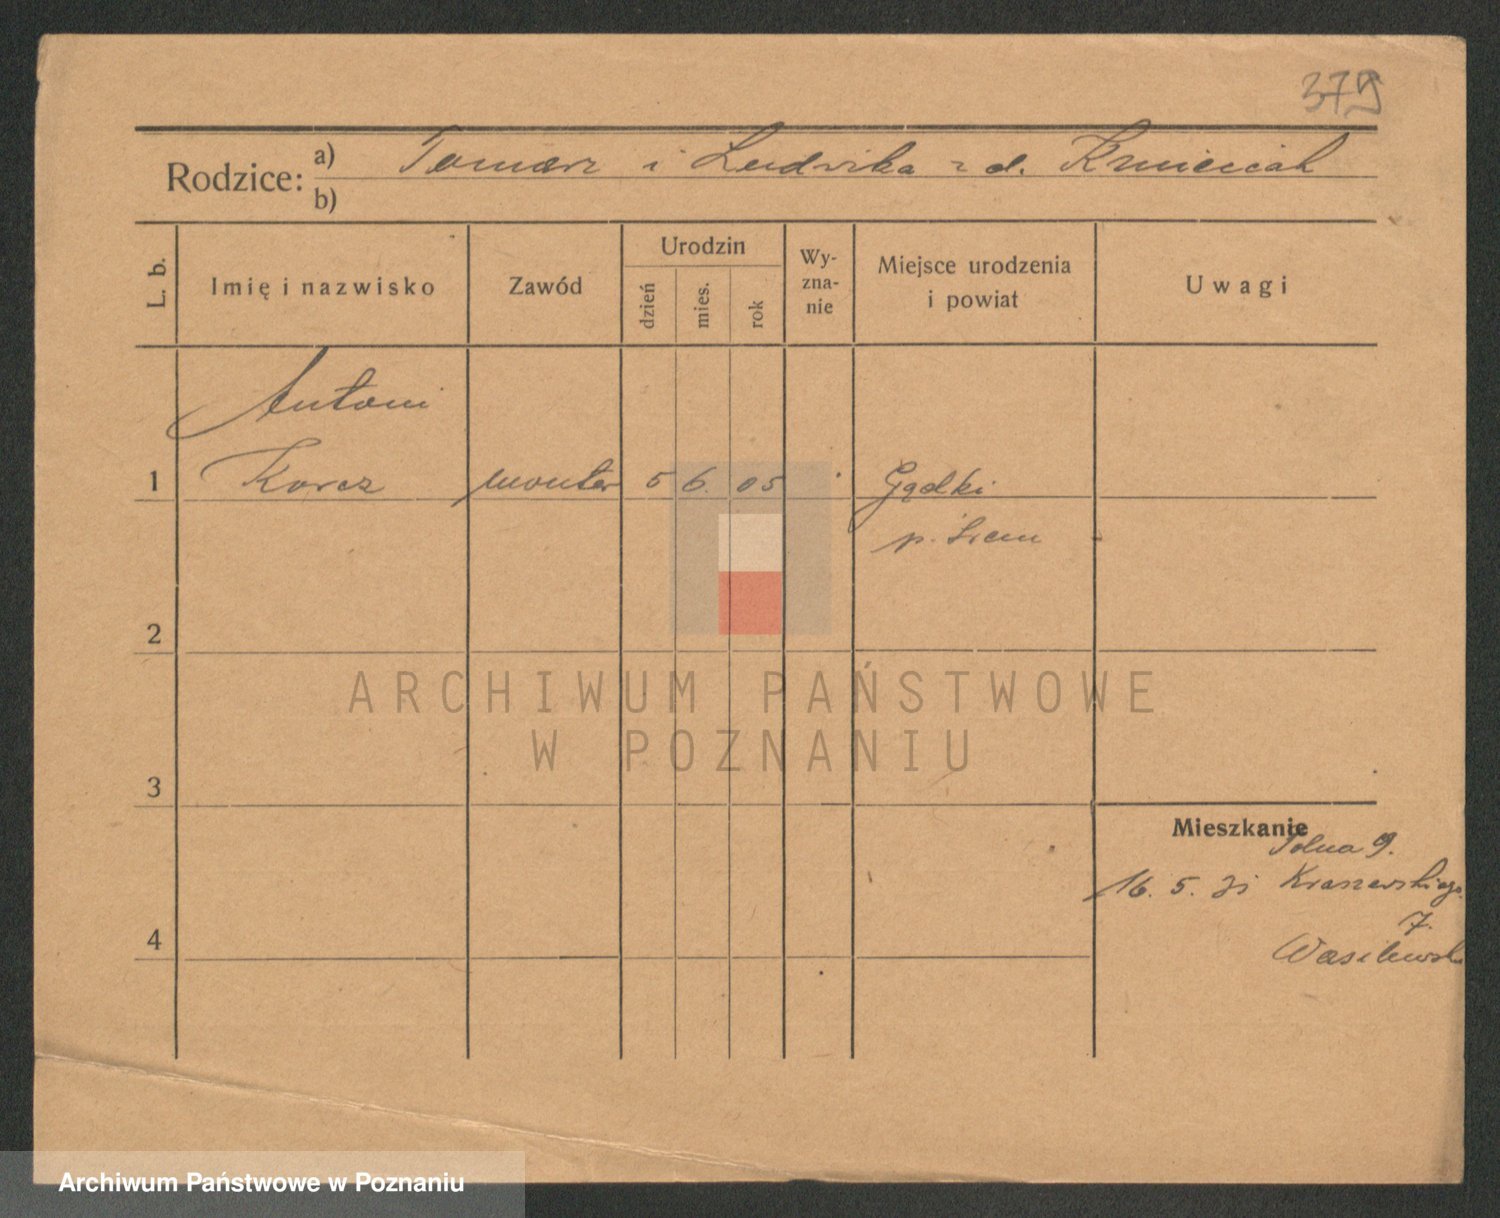 379
Rodzice: a) Tomasz i Ludwika z d. Kmieciak
b)
L. b. Imię i nazwisko Zawód Urodzin dzień mies. rok Wy-zna-nie Miejsce urodzenia i powiat Uwagi
Antoni
1 Korcz monter 5 6. 05 Gądki
p. Śrem
2
ARCHIWUM PAŃSTWOWE
W POZNANIU
3
Mieszkanie
Polna 9.
16. 5. 31 Kraszewskiego
7.
4
Archiwum Państwowe w Poznaniu